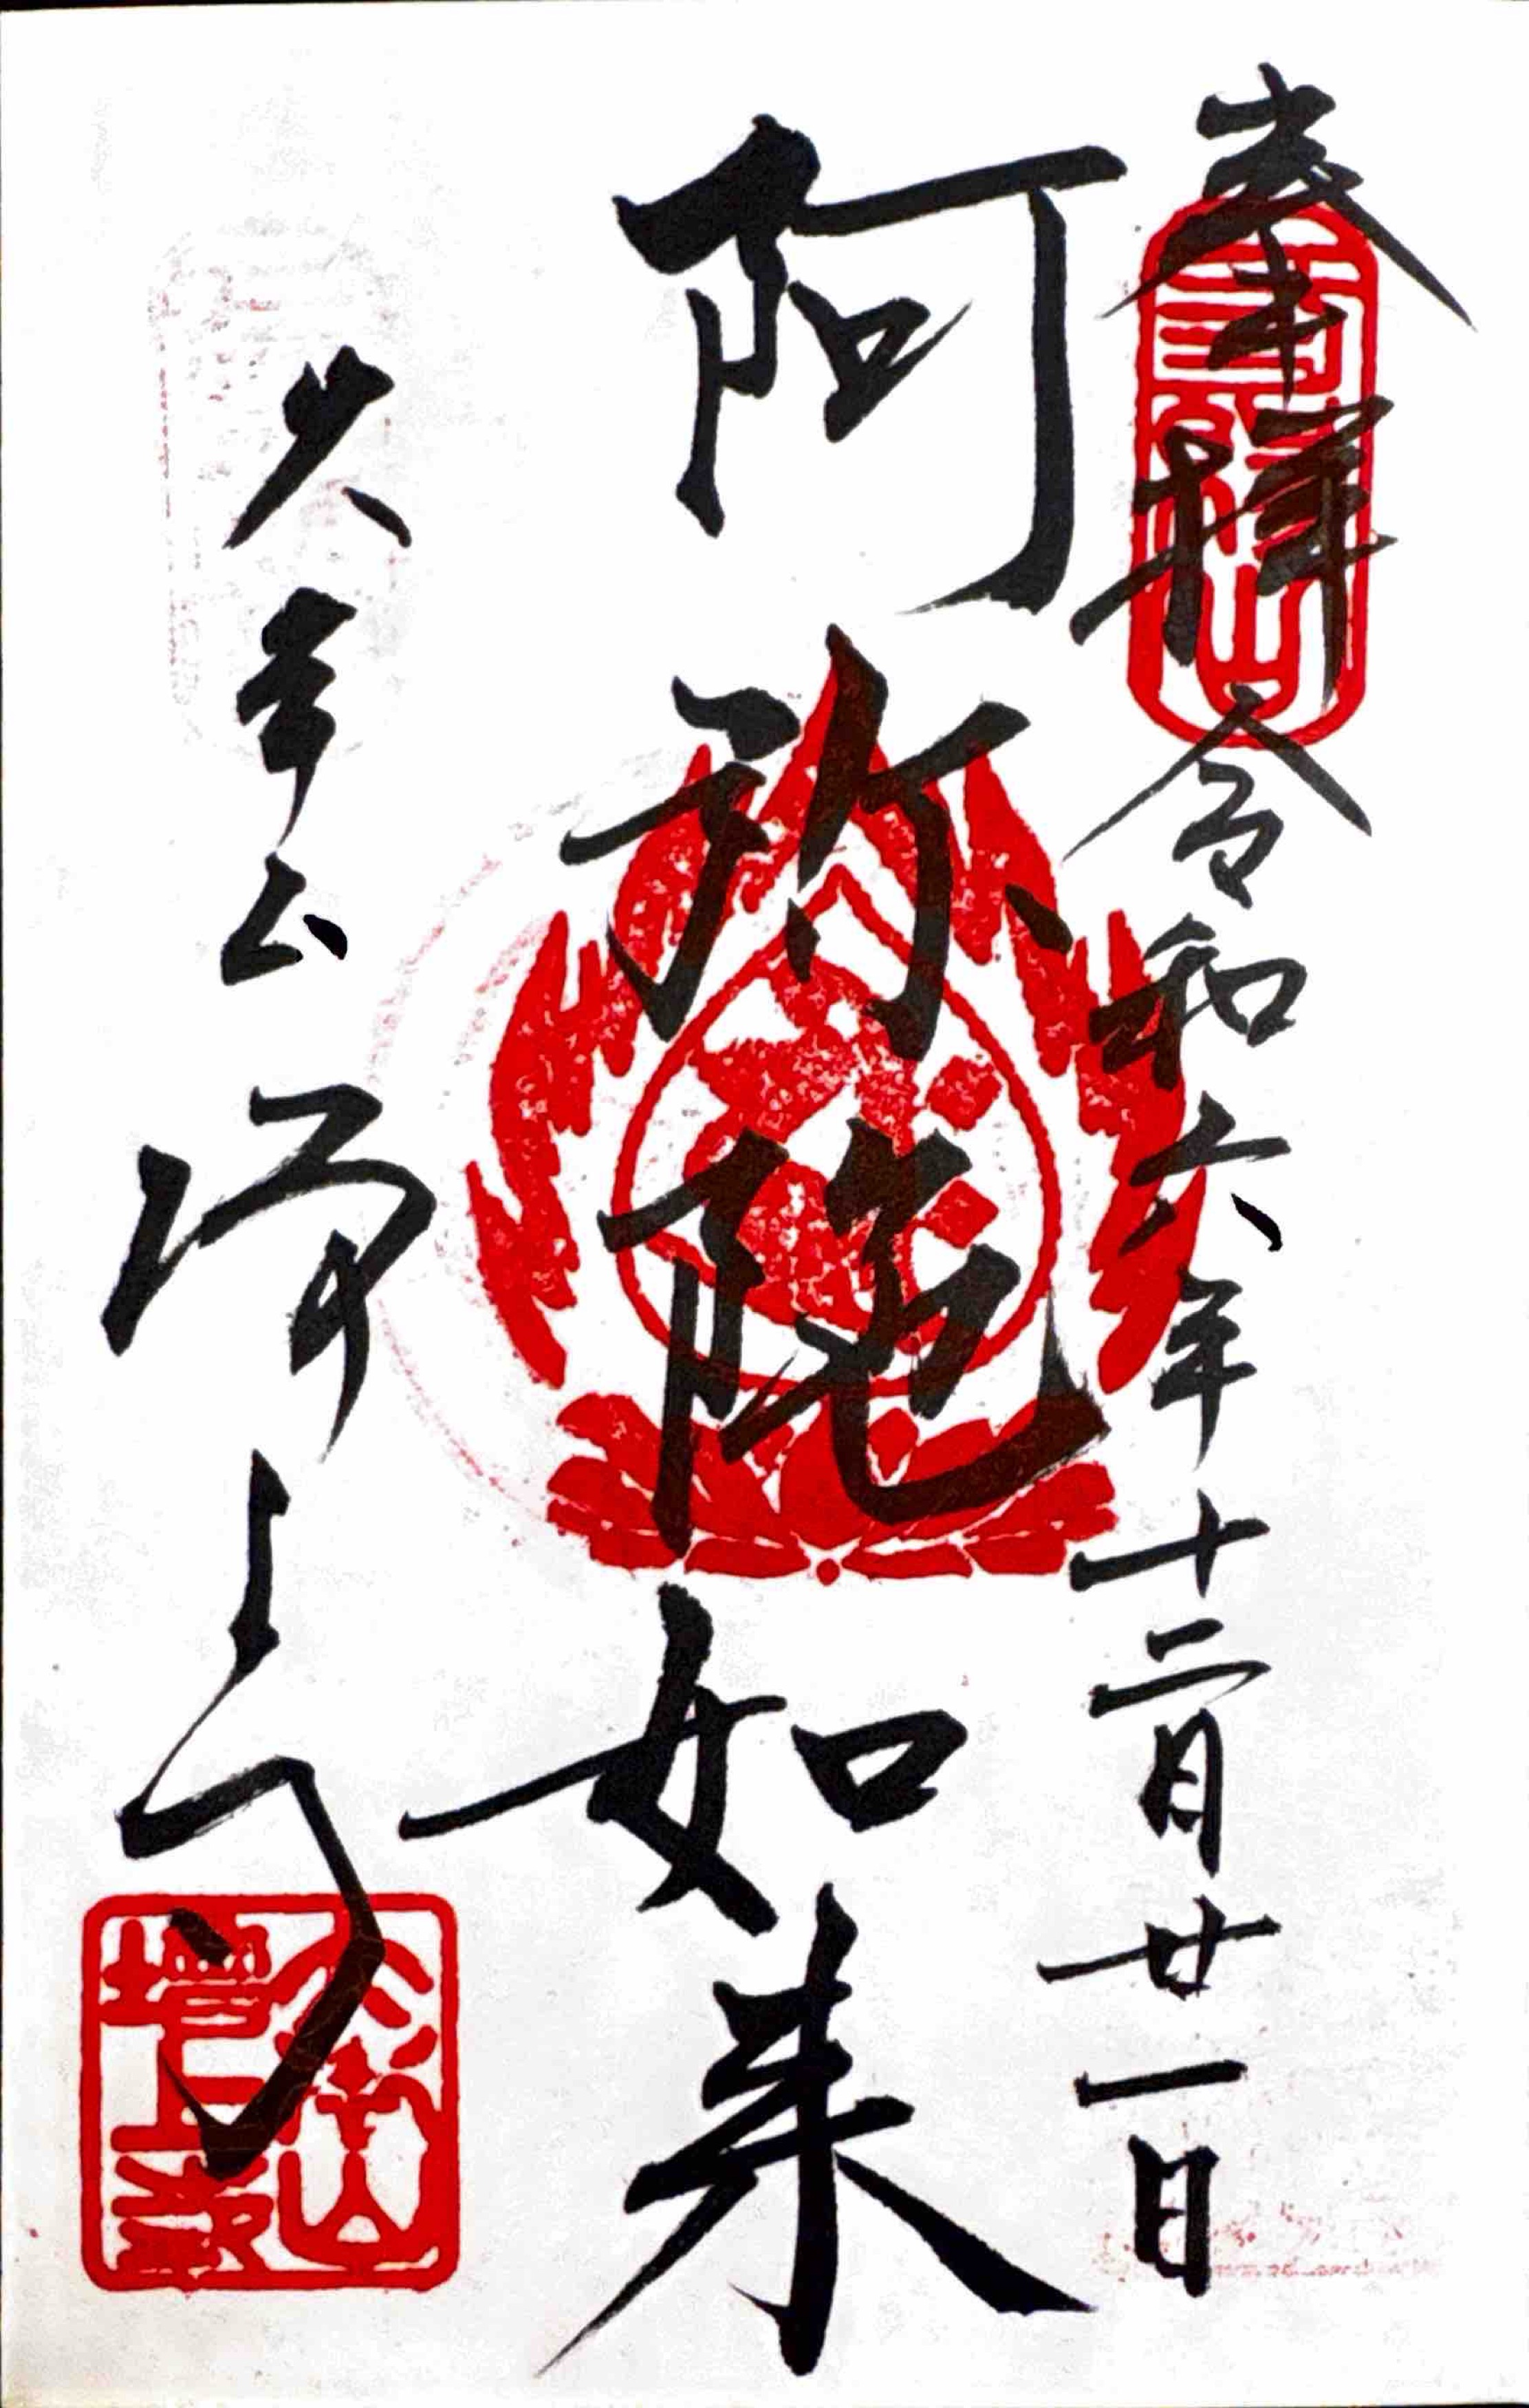 奉拝 令和六年十二月廿一日
三縁山
阿弥陀如来
大本山 増上寺
大本山
増上寺